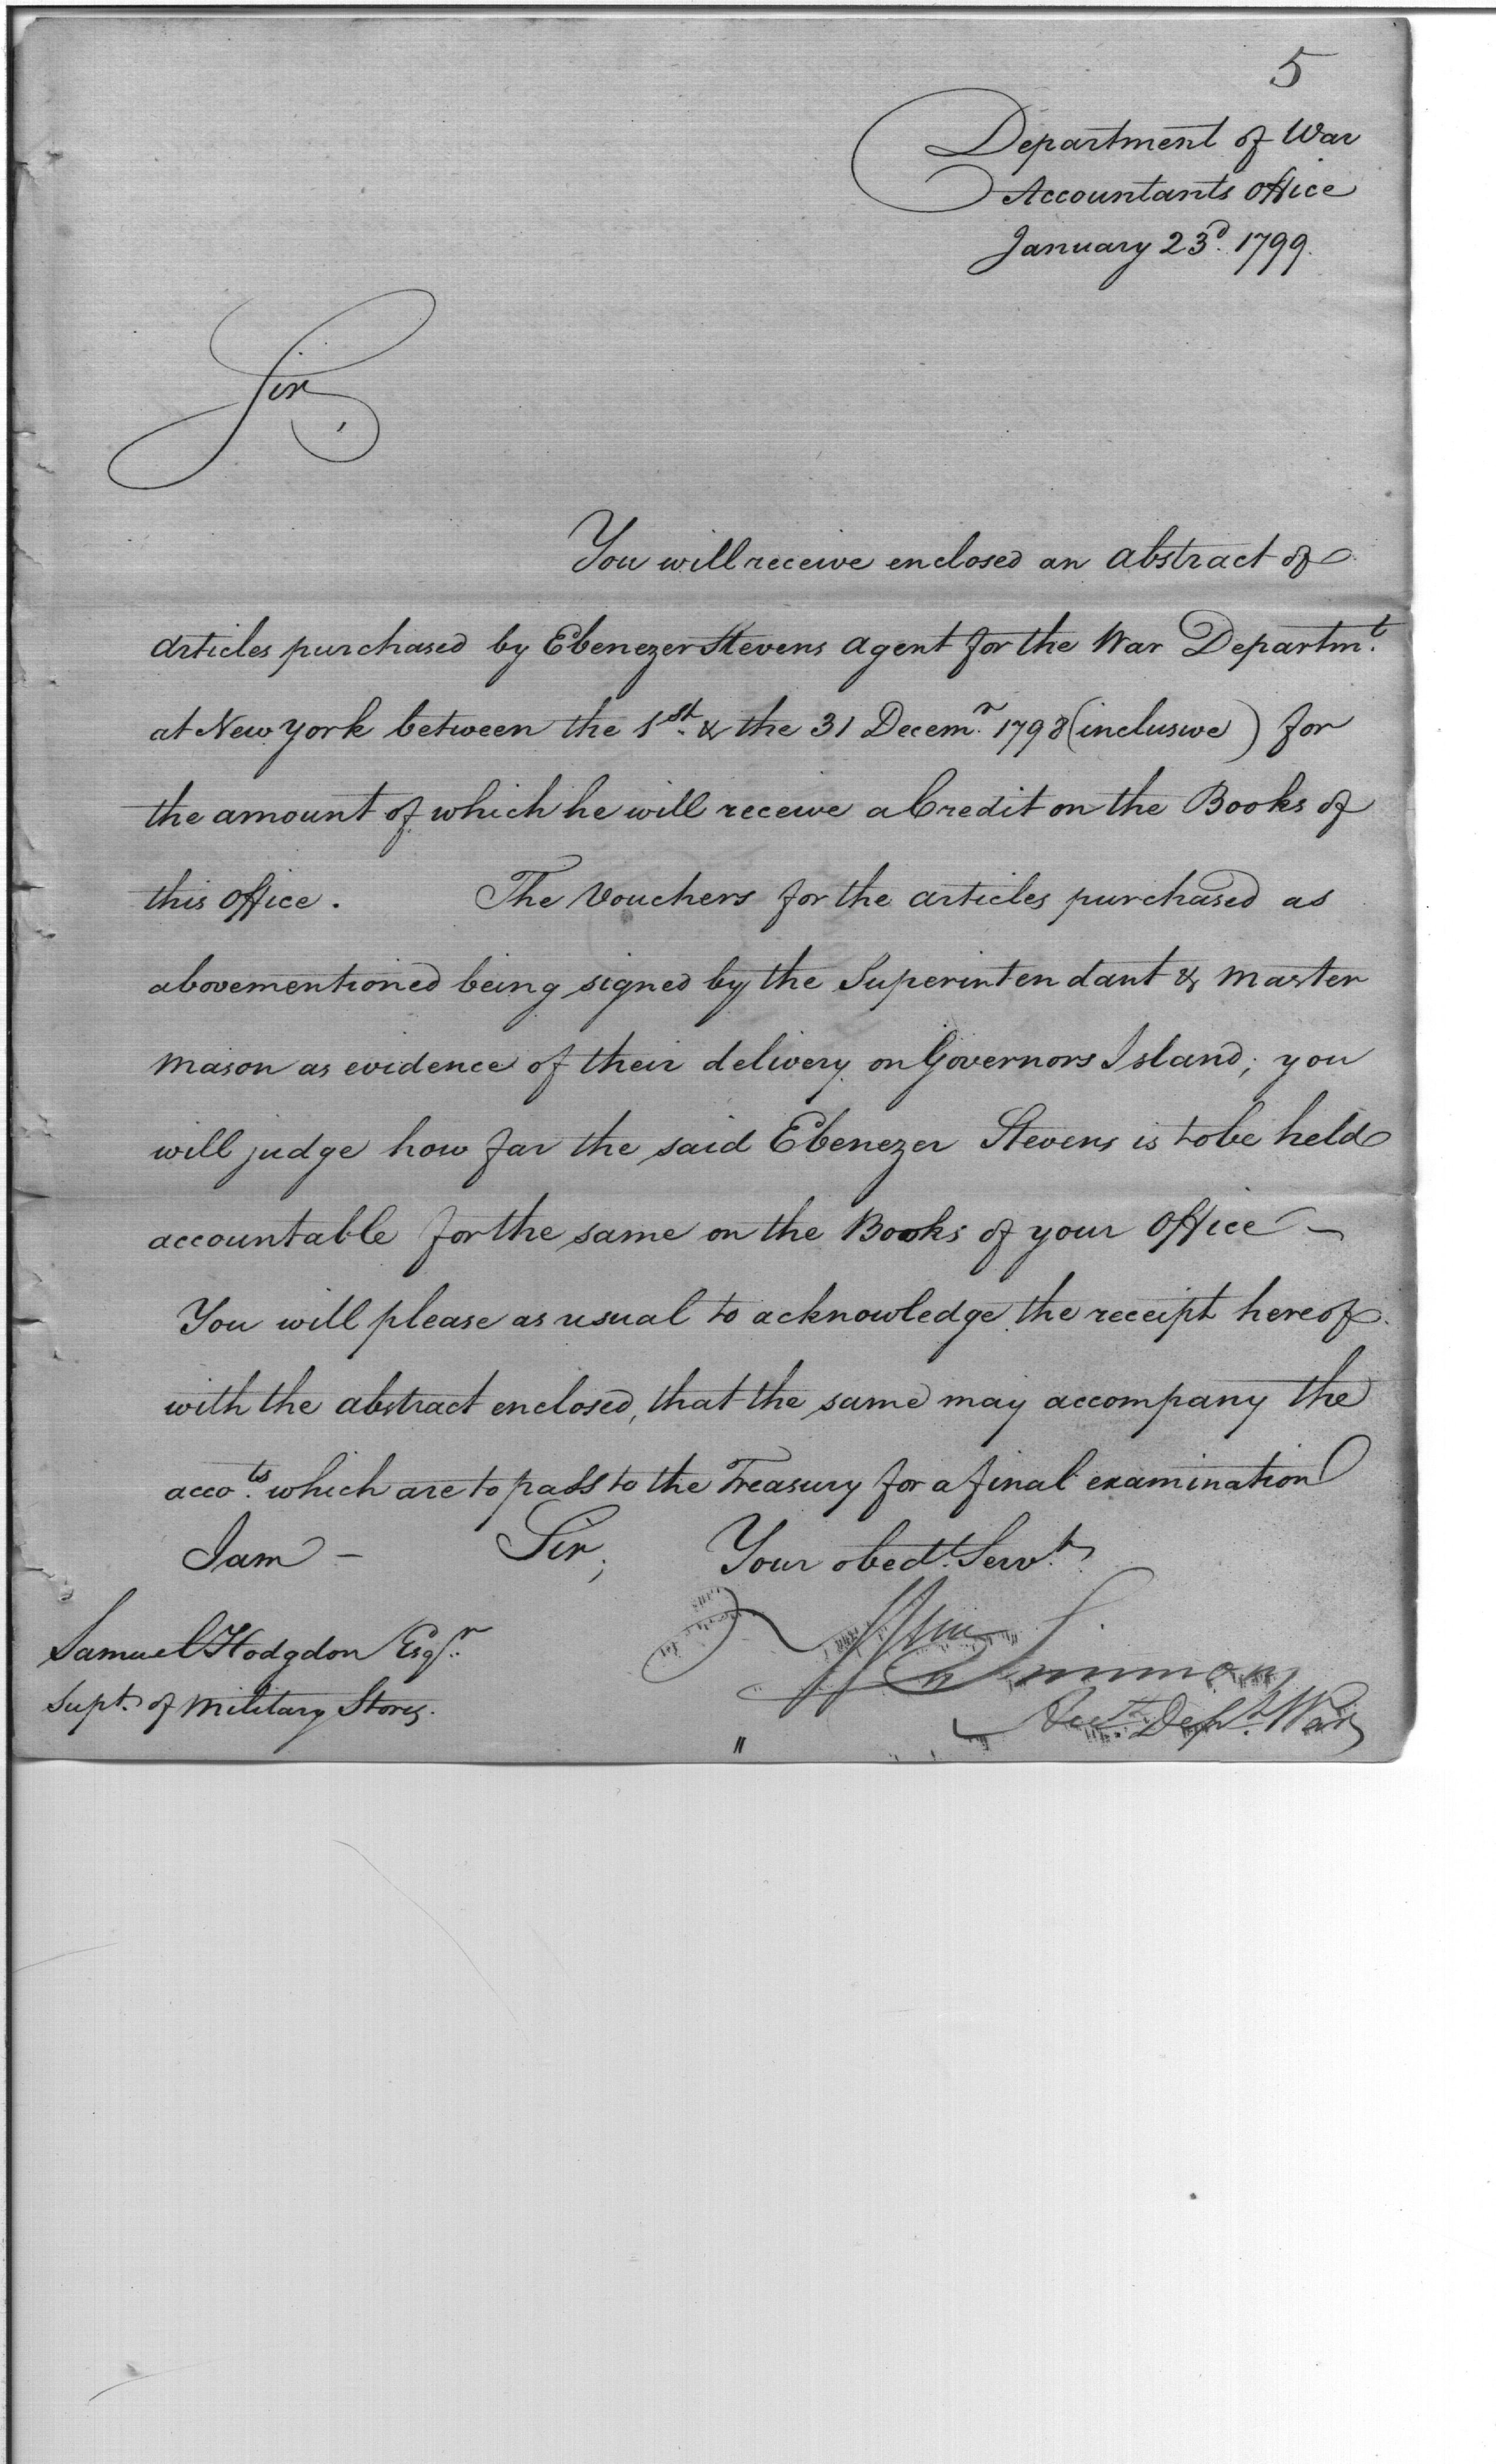 5
Department of War
Accountants Office
January 23d. 1799.
Sir,
You will receive enclosed an Abstract of
articles purchased by Ebenezer Stevens Agent for the War Departmt.
at New York between the 1st. & the 31 Decemr. 1798 (inclusive) for
the amount of which he will receive a Credit on the Books of
this Office. The Vouchers for the articles purchased as
abovementioned being signed by the Superintendant & Master
Mason as evidence of their delivery on Governors Island; you
will judge how far the said Ebenezer Stevens is to be held
accountable for the same on the Books of your Office —
You will please as usual to acknowledge the receipt hereof
with the abstract enclosed, that the same may accompany the
accots. which are to pass to the Treasury for a final examination
I am — Sir, Your obedt. Servt.
Wm Simmons
Samuel Hodgdon Esqr.
Acct. Dept. War
Supt. of Military Stores.